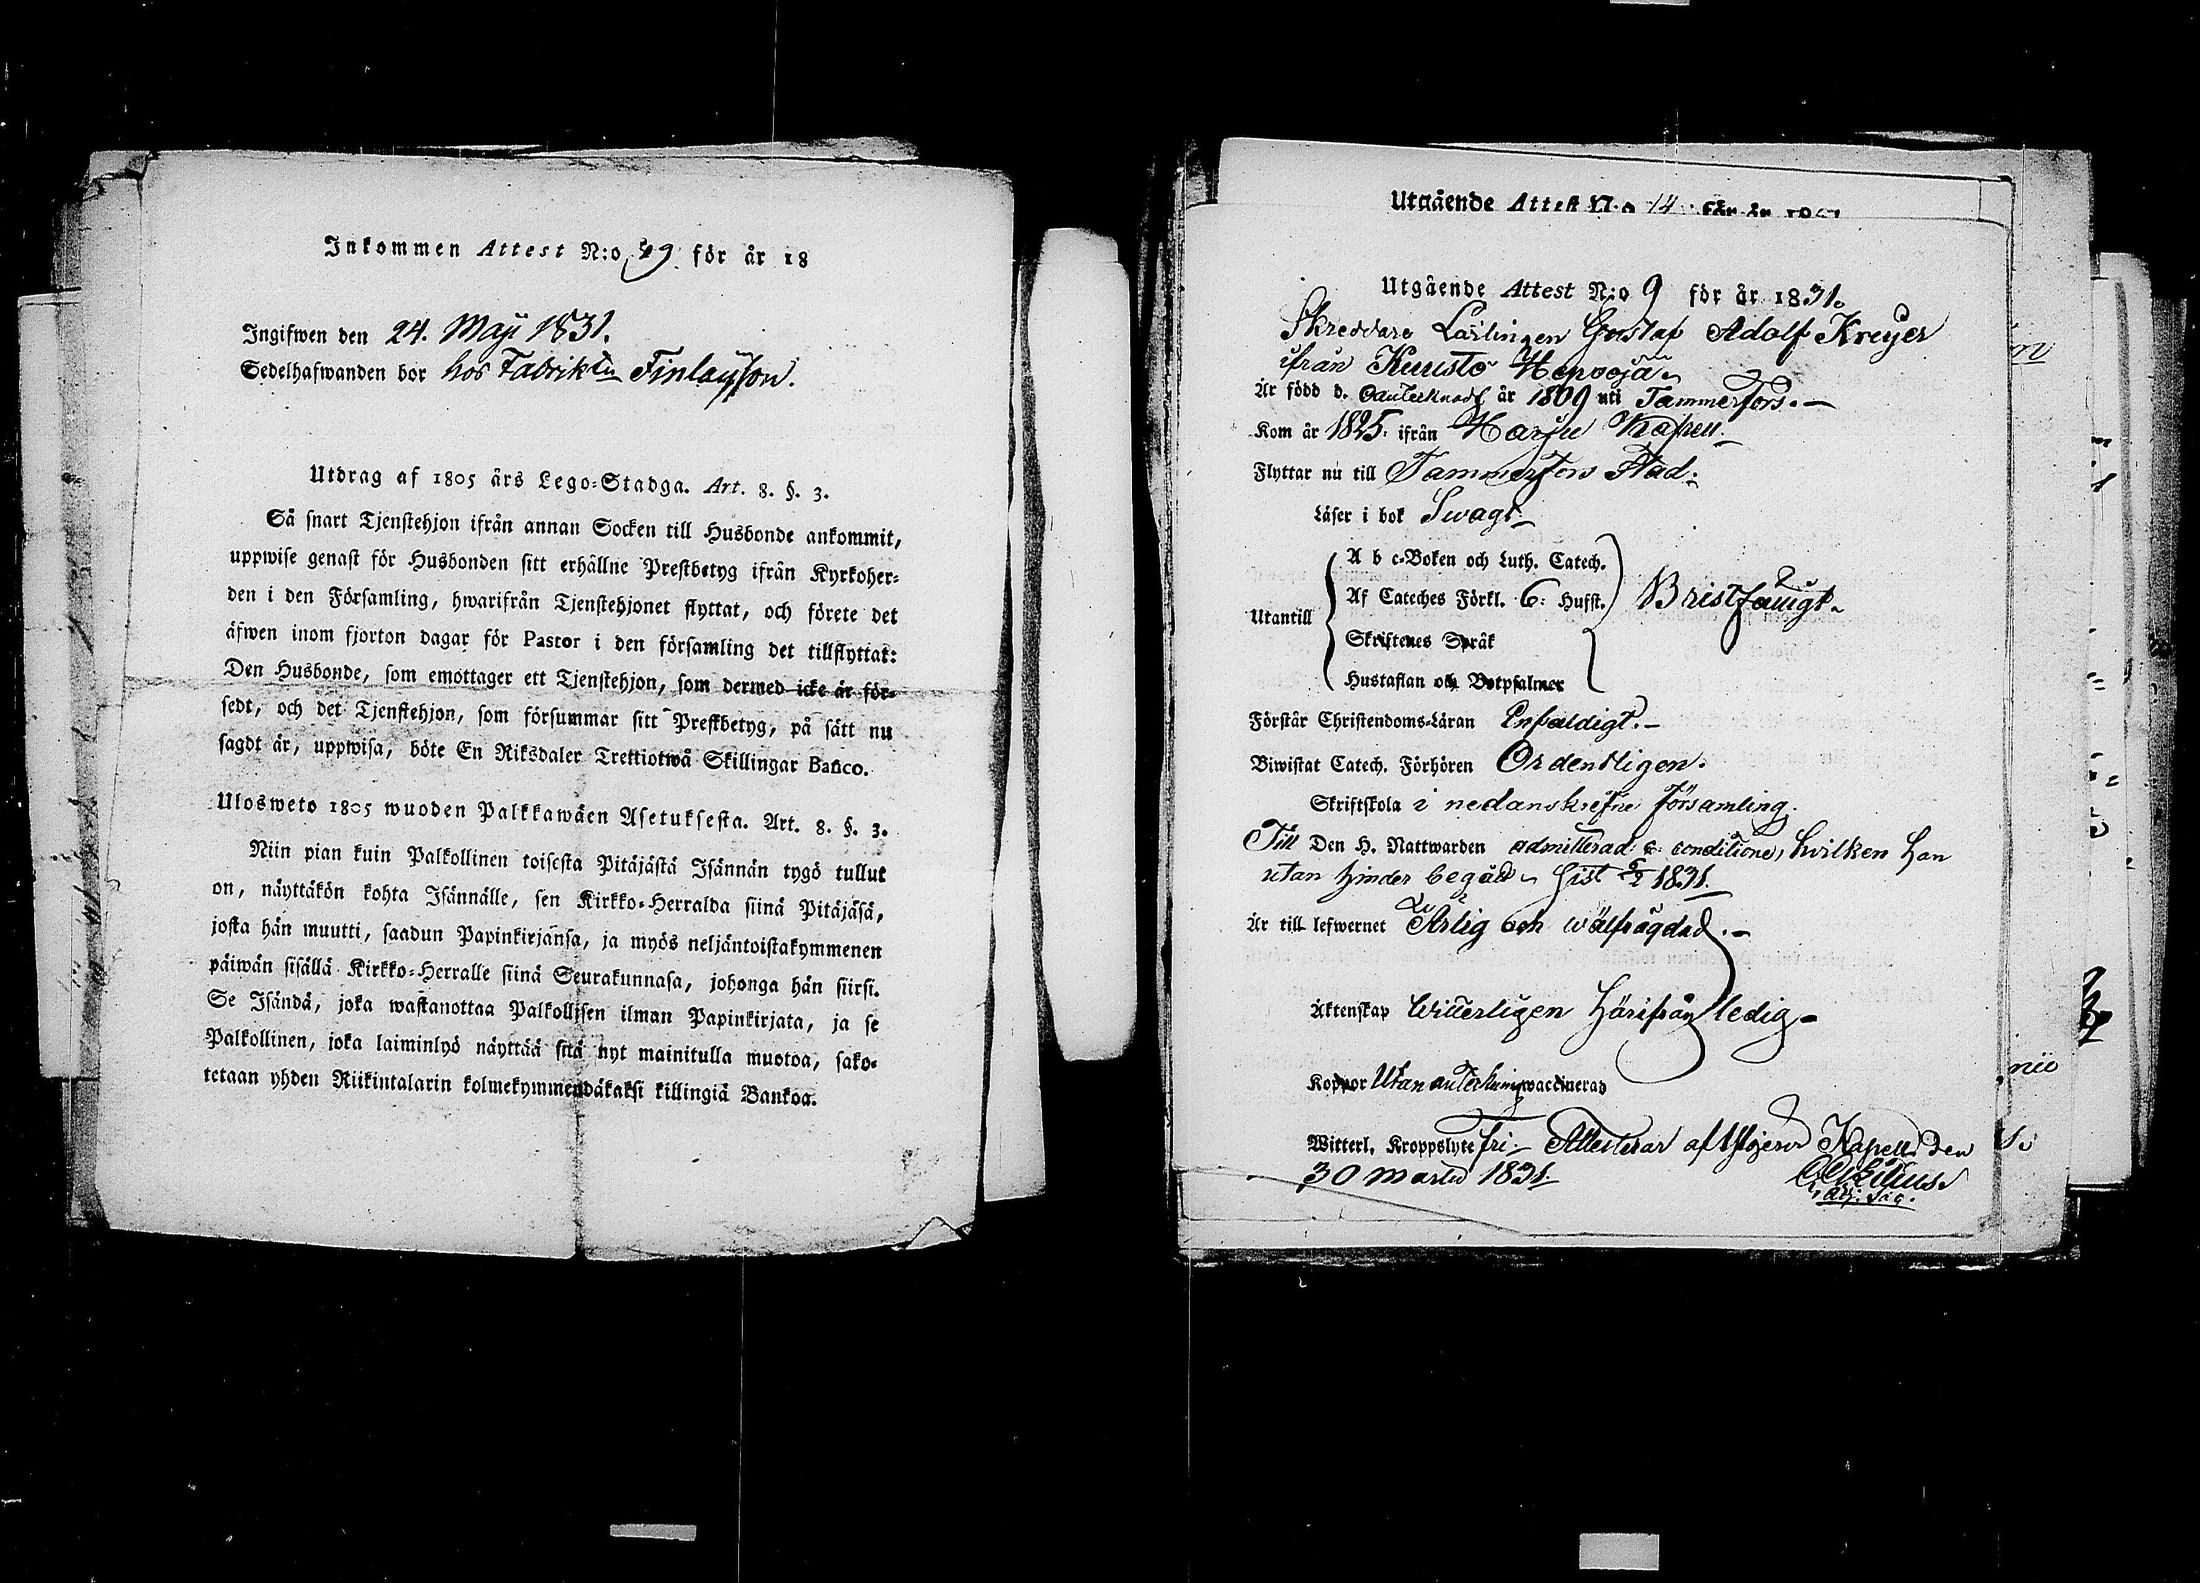 Inkommen Attest N:o 49 för år 18
Ingifwen den 24. Maji 1831.
Sedelhafwanden bor hos Fabriktn Finlayson.
Utdrag af 1805 års Lego-Stadga. Art. 8. §. 3.
Så snart Tjenstehjon ifrån annan Socken till Husbonde ankommit,
uppwise genast för Husbonden sitt erhållne Prestbetyg ifrån Kyrkoher-
den i den Församling, hwarifrån Tjenstehjonet flyttat, och förete det
äfwen inom fjorton dagar för Pastor i den församling det tillflyttat:
Den Husbonde, som emottager ett Tjenstehjon, som dermed icke är för-
sedt, och det Tjenstehjon, som försummar sitt Prestbetyg, på sätt nu
sagdt är, uppwisa, böte En Riksdaler Trettiotwå Skillingar Banco.
Ulosweto 1805 wuoden Palkkawäen Asetuksesta. Art. 8. §. 3.
Niin pian kuin Palkollinen toisesta Pitäjästä Isännän tygö tullut
on, näyttäkön kohta Isännälle, sen Kirkko-Herralda siinä Pitäjäsä,
josta hän muutti, saadun Papinkirjansa, ja myös neljäntoistakymmenen
päiwän sisällä Kirkko-Herralle siinä Seurakunnasa, johonga hän siirsi.
Se Isändä, joka wastanottaa Palkollisen ilman Papinkirjata, ja se
Palkollinen, joka laiminlyö näyttää sitä nyt mainitulla muotoa, sako-
tetaan yhden Riikintalarin kolmekymmendäkaksi killingiä Bankoa.
Utgående Attest N:o 14 för år
Utgående Attest N:o 9 för år 1831.
Skreddare Lärlingen Gustaf Adolf Kreyer
ifrån Kuusto Heposja
Är född d. oantecknadt år 1809 uti Tammerfors.
Kom år 1825. ifrån Harju Kapell
Flyttar nu till Tammerfors Stad.
Läser i bok Swagt
A b c-Boken och Luth. Catech.
Af Cateches Förkl. 6: Hufst. Bristfäligt
Utantill
Skriftenes Språk
Hustaflan och Botpsalmer
Förstår Christendoms-Läran Enfaldigt.
Biwistat Catech. Förhören Ordentligen.
Skriftskola i nedanskrefne församling.
Till Den H. Nattwarden admitterad c: conditione, hvilken han
utan hinder begådt sist 1831.
Är till lefwernet Ärlig och wälfrägdad.
Äktenskap Witterligen härifrån ledig
Koppor Utan anteckning vaccinerad
Witterl. Kroppslyte fri. Attesterar af Ylöjerwi Kapell den
30 Martii 1831.
Adj. Sac.